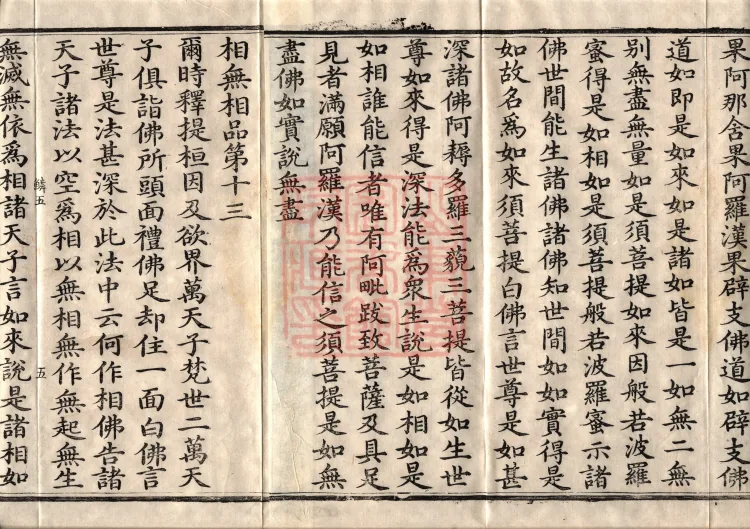 果阿那舍果阿羅漢果辟支佛道如辟支佛
道如即是如來如是諸如皆是一如無二無
別無盡無量如是須菩提如來因般若波羅
蜜得是如相如是須菩提般若波羅蜜示諸
佛世間能生諸佛諸佛知世間如如實得是
如故名爲如來須菩提白佛言世尊是如甚
深諸佛阿耨多羅三藐三菩提皆從如生世
尊如來得是深法能爲衆生說是如相如是
如相誰能信者唯有阿毗跋致菩薩及具足
見者滿願阿羅漢乃能信之須菩提是如無
盡佛如實說無盡
相無相品第十三
爾時釋提桓因及欲界萬天子梵世二萬天
子俱詣佛所頭面禮佛足却住一面白佛言
世尊是法甚深於此法中云何作相佛告諸
天子諸法以空爲相以無相無作無起無生
鱗五 五
無滅無依爲相諸天子言如來說是諸相如